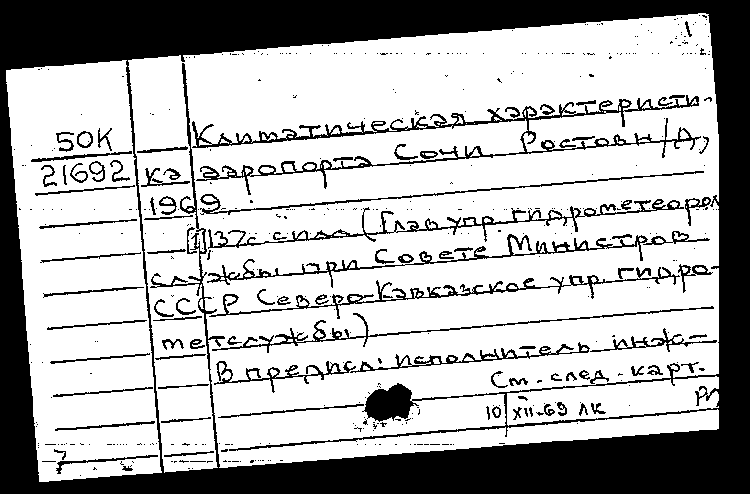 1
50К
21692
Климатическая характеристи-
ка аэропорта Сочи. Ростов н/Д,
1969.
[1], 37с. (Глав упр. гидрометеорол
службы при Совете Министров
СССР Северо-Кавказское упр. гидро-
метслужбы)
В предисл: исполнитель инж.-
См. след. карт.
10 XII-69 ЛК
7